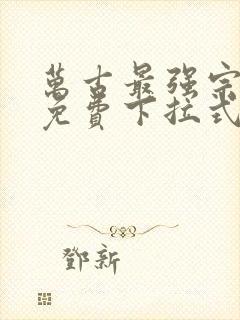 萬古最强宗
免費下拉式
鄧新